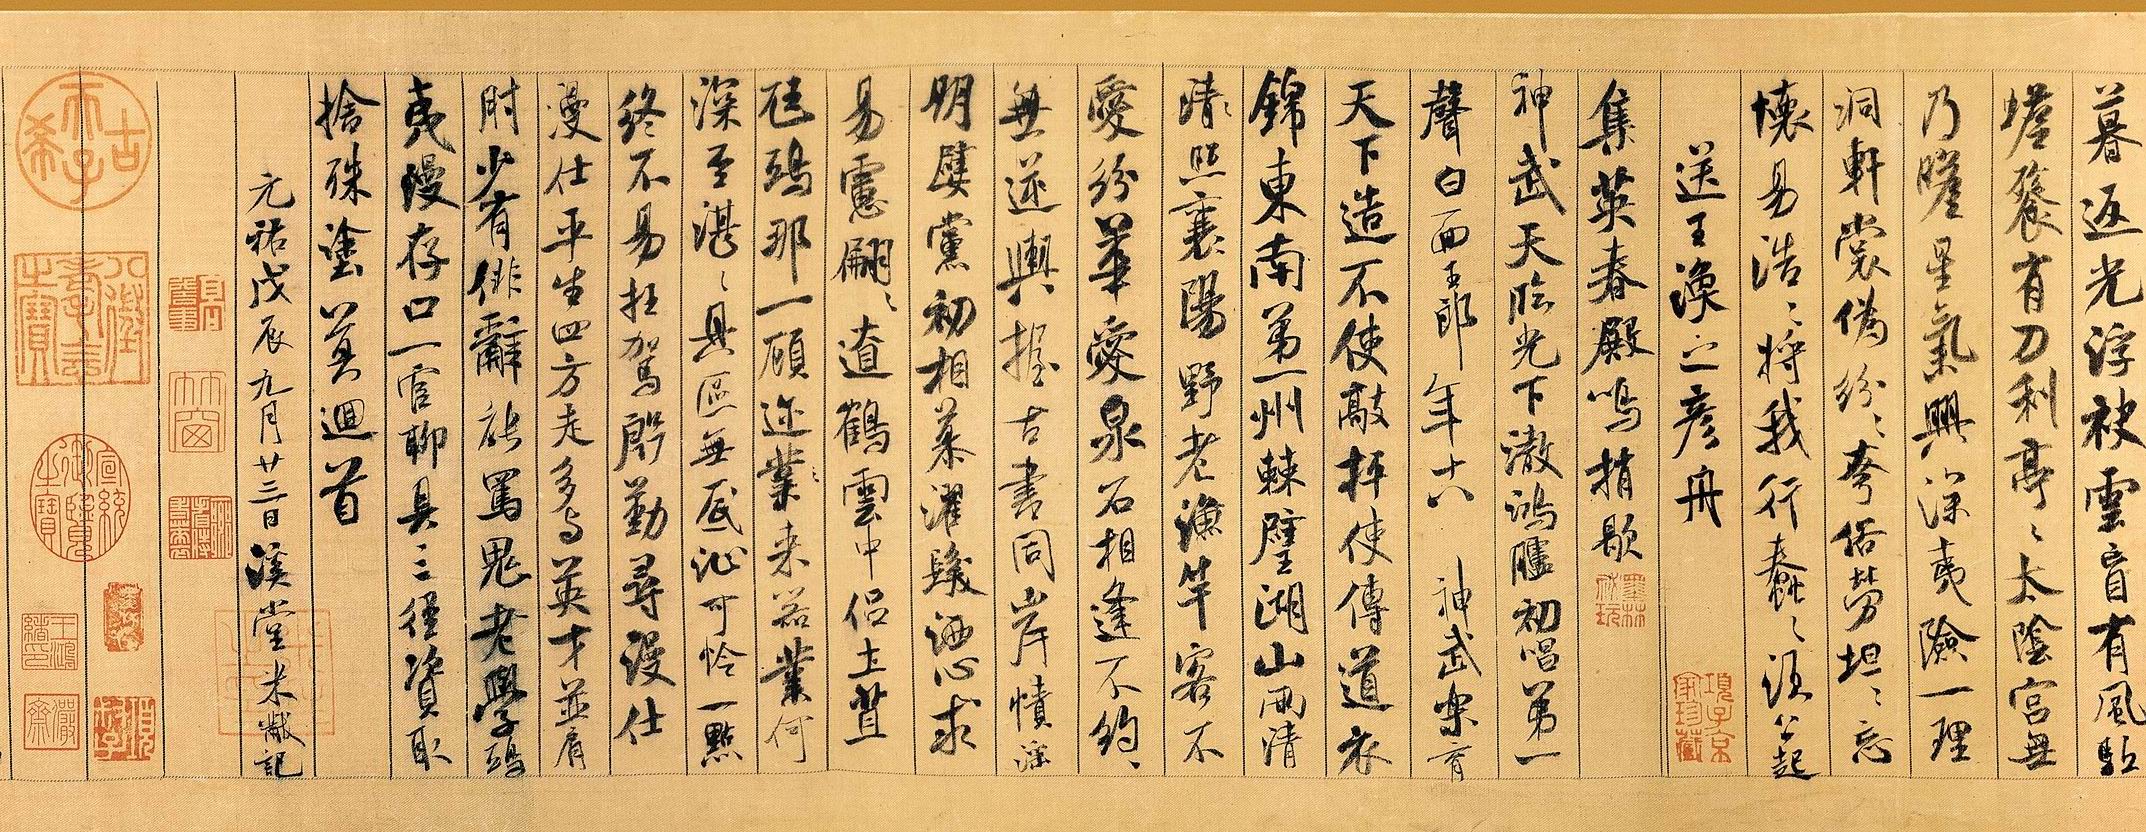 暮返光浮袂雲盲有風馭
蟾餐有刀利亭〻太陰宮無
乃瞻星氣興深夷險一理
洞軒裳偽紛〻夸俗勞坦〻忘
懷易浩〻將我行蠢〻須公起
送王渙之彥舟
集英春殿鳴捎歇
神武天臨光下澈鴻臚初唱第一
聲白面玉郎年十八神武樂育
天下造不使敲抨使傳道衣
錦東南第一州棘璧湖山兩清
照襄陽野老漁竿客不
愛紛華愛泉石相逢不約
無逆輿握古書同岸幘淫
朋嬖黨初相慕濯髮洒心求
易慮翩〻遼鶴雲中侶土苴
尪鴟那一顧邇來器業何
深至湛〻具區無底沚可憐一點
終不易枉駕殷勤尋漫仕
漫仕平生四方走多与英才並肩
肘少有俳辭能罵鬼老學鴟
夷漫存口一官聊具三徑資取
捨殊塗莫迴首
元祐戊辰九月廿三日溪堂米黻記
古希天子
八徵耄念之寶
宣統御覽之寶
竹窗
項子京家珍藏